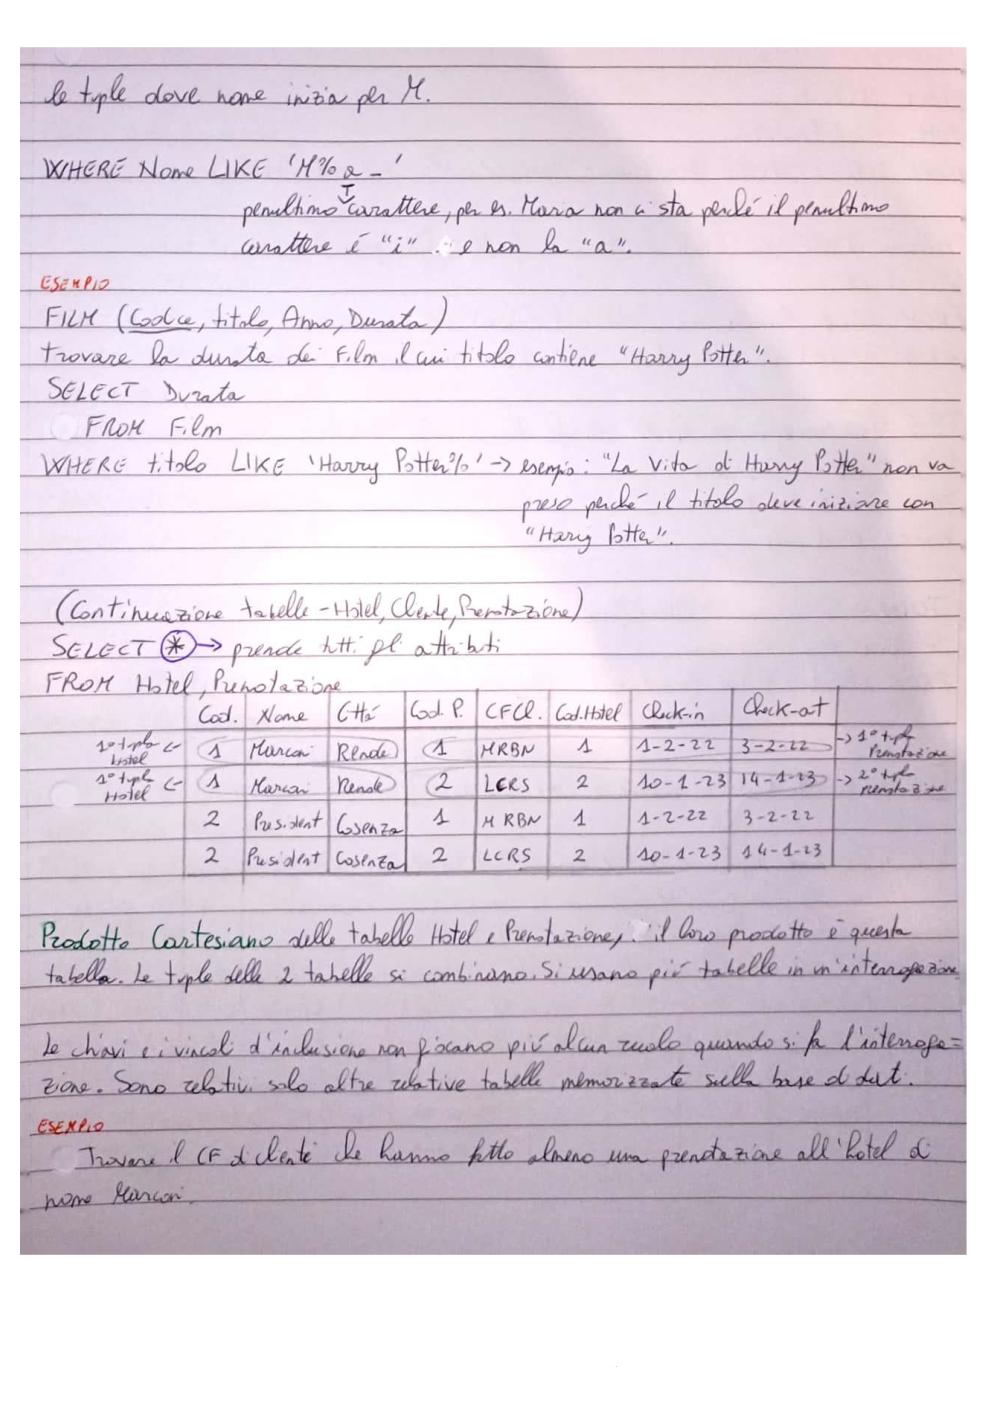 le tuple dove nome inizia per M.
WHERE Nome LIKE 'M%a_'
penultimo carattere, per es. Maria non ci sta perché il penultimo
carattere é "i" e non la "a".
ESEMPIO
FILM (Codice, titolo, Anno, Durata)
trovare la durata dei Film il cui titolo contiene "Harry Potter".
SELECT Durata
FROM Film
WHERE titolo LIKE 'Harry Potter%' -> esempio: "La Vita di Harry Potter" non va
preso perché il titolo deve iniziare con
"Harry Potter".
(Continuazione tabelle - Hotel, Cliente, Prenotazione)
SELECT * -> prende tutti gli attributi
FROM Hotel, Prenotazione
Cod. Nome Cittá Cod. P. CFCl. Cod.Hotel Check-in Check-out
1° tupla Hotel <- 1 Marconi Rende 1 MRBN 1 1-2-22 3-2-22 -> 1° tupla Prenotazione
1° tupla Hotel <- 1 Marconi Rende 2 LCRS 2 10-1-23 14-1-23 -> 2° tupla prenotazione
2 President Cosenza 1 MRBN 1 1-2-22 3-2-22
2 President Cosenza 2 LCRS 2 10-1-23 14-1-23
Prodotto Cartesiano delle tabelle Hotel e Prenotazione, il loro prodotto è questa
tabella. Le tuple delle 2 tabelle si combinano. Si usano piú tabelle in un'interrogazione
Le chiavi e i vincoli d'inclusione non giocano piú alcun ruolo quando si fa l'interroga=
zione. Sono relativi solo altre relative tabelle memorizzate sulla base di dati.
ESEMPIO
Trovare il CF di clienti che hanno fatto almeno una prenotazione all'hotel di
nome Marconi.